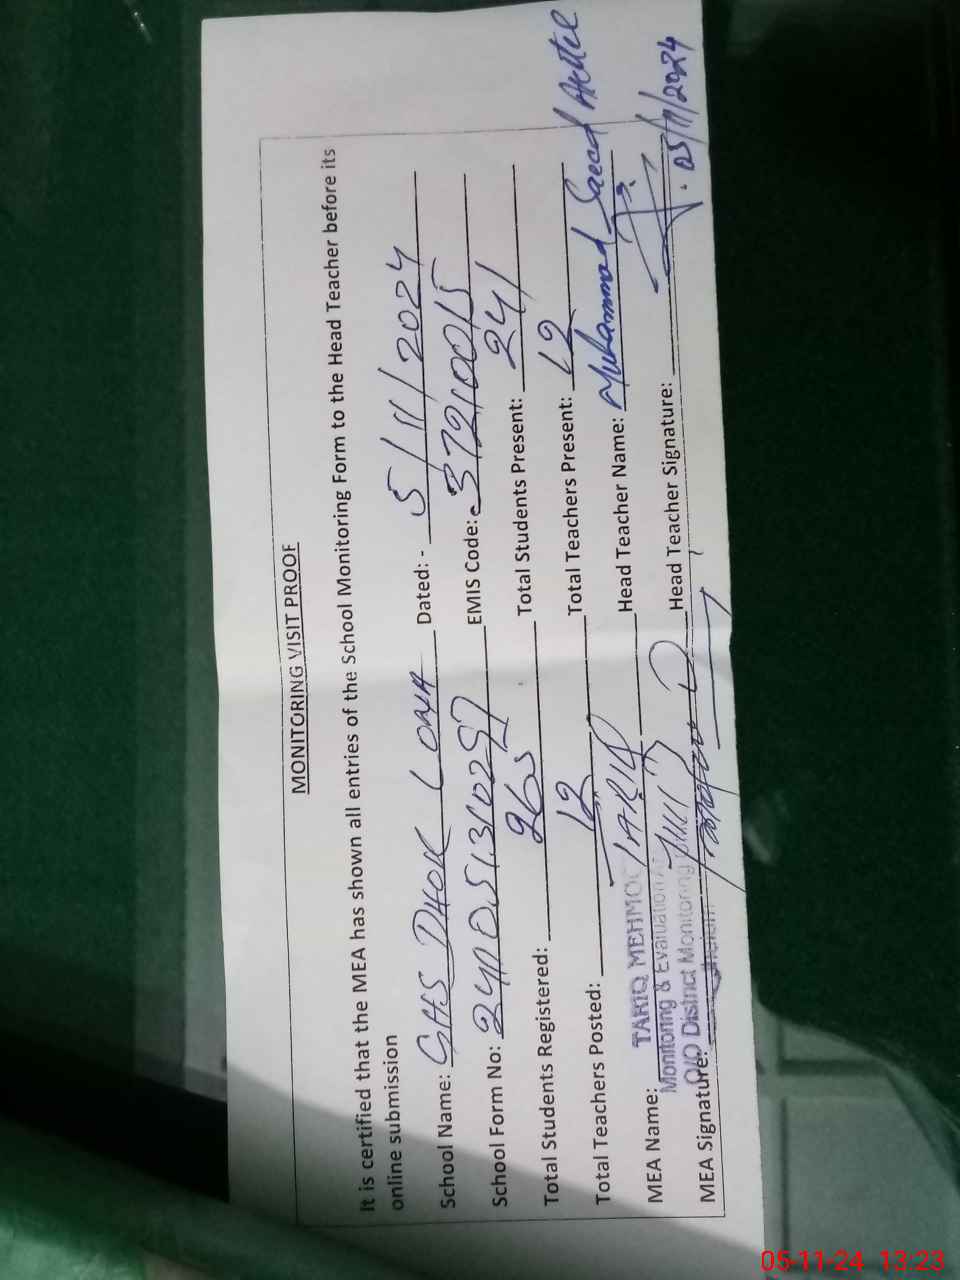 MONITORING VISIT PROOF
It is certified that the MEA has shown all entries of the School Monitoring Form to the Head Teacher before its
online submission
School Name: GHS DHOK LONA Dated: - 5/11/2024
School Form No: EMIS Code: 37210015
Total Students Registered: 265 Total Students Present: 241
Total Teachers Posted: 12 Total Teachers Present: 12
MEA Name: TARIQ Head Teacher Name: Muhammad Saeed Akhtar
TARIQ MEHMOO
Monitoring & Evaluation
O/O District Monitoring
MEA Signature: Head Teacher Signature: 05/11/2024
05-11-24 13:23